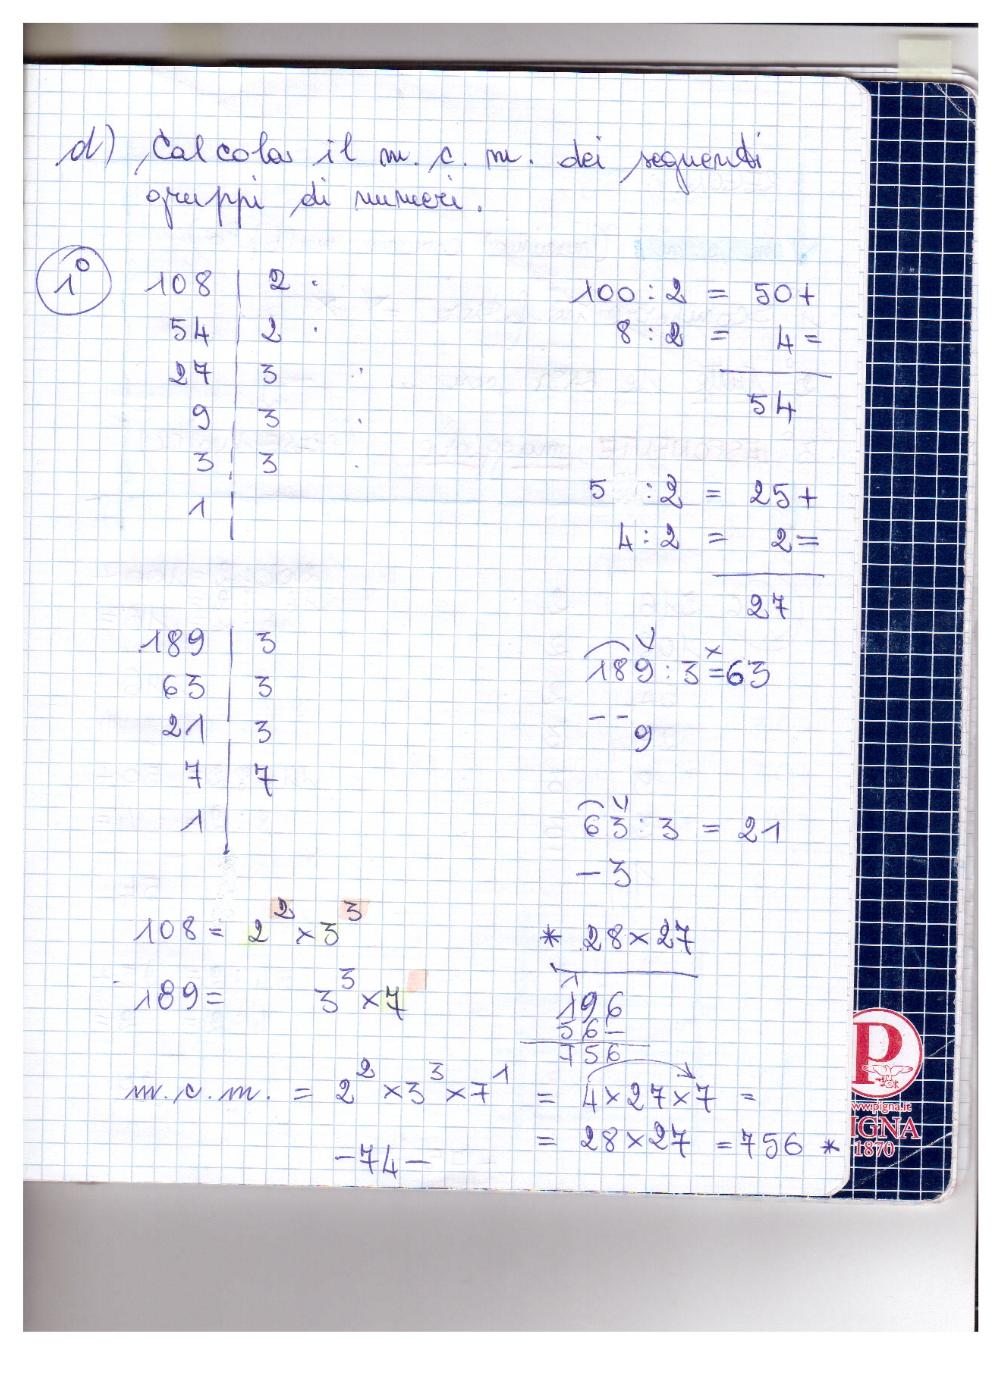 d) Calcola il m.c.m. dei seguenti
gruppi di numeri.
1°
108 | 2
54 | 2
27 | 3
9 | 3
3 | 3
1 |
100 : 2 = 50+
8 : 2 = 4=
54
5 : 2 = 25+
4 : 2 = 2=
27
189 | 3
63 | 3
21 | 3
7 | 7
1 |
189 : 3 = 63
-- 9
63 : 3 = 21
- 3
108 = 2² × 3³
189 = 3³ × 7
* 28 × 27
1
196
56-
756
m.c.m. = 2² × 3³ × 7¹ = 4 × 27 × 7 =
= 28 × 27 = 756 *
- 74 -
P
www.pigna.it
IGNA
1870